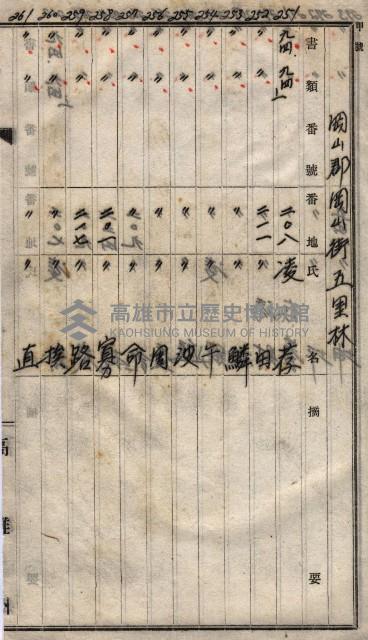 甲號
岡山郡岡山街五里林
書類番號 番地 氏名 摘要
251 九四、九四ノ上 二〇八 凌荐
252 〃 〃 二一一 〃 田
253 〃 〃 〃 〃 鱗
254 〃 〃 〃 〃 午
255 〃 〃 〃 〃 波
256 〃 〃 〃 〃 周
257 〃 〃 二〇九 〃 命
258 〃 〃 〃
259 〃 〃 〃 路
260 〃 〃 〃
261 〃 〃 〃 〃 直
高雄市立歷史博物館
KAOHSIUNG MUSEUM OF HISTORY
高雄州